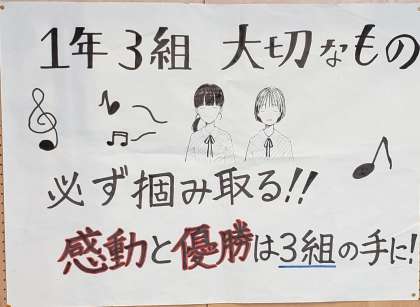 1年3組 大切なもの
必ず掴み取る!!
感動と優勝は3組の手に!